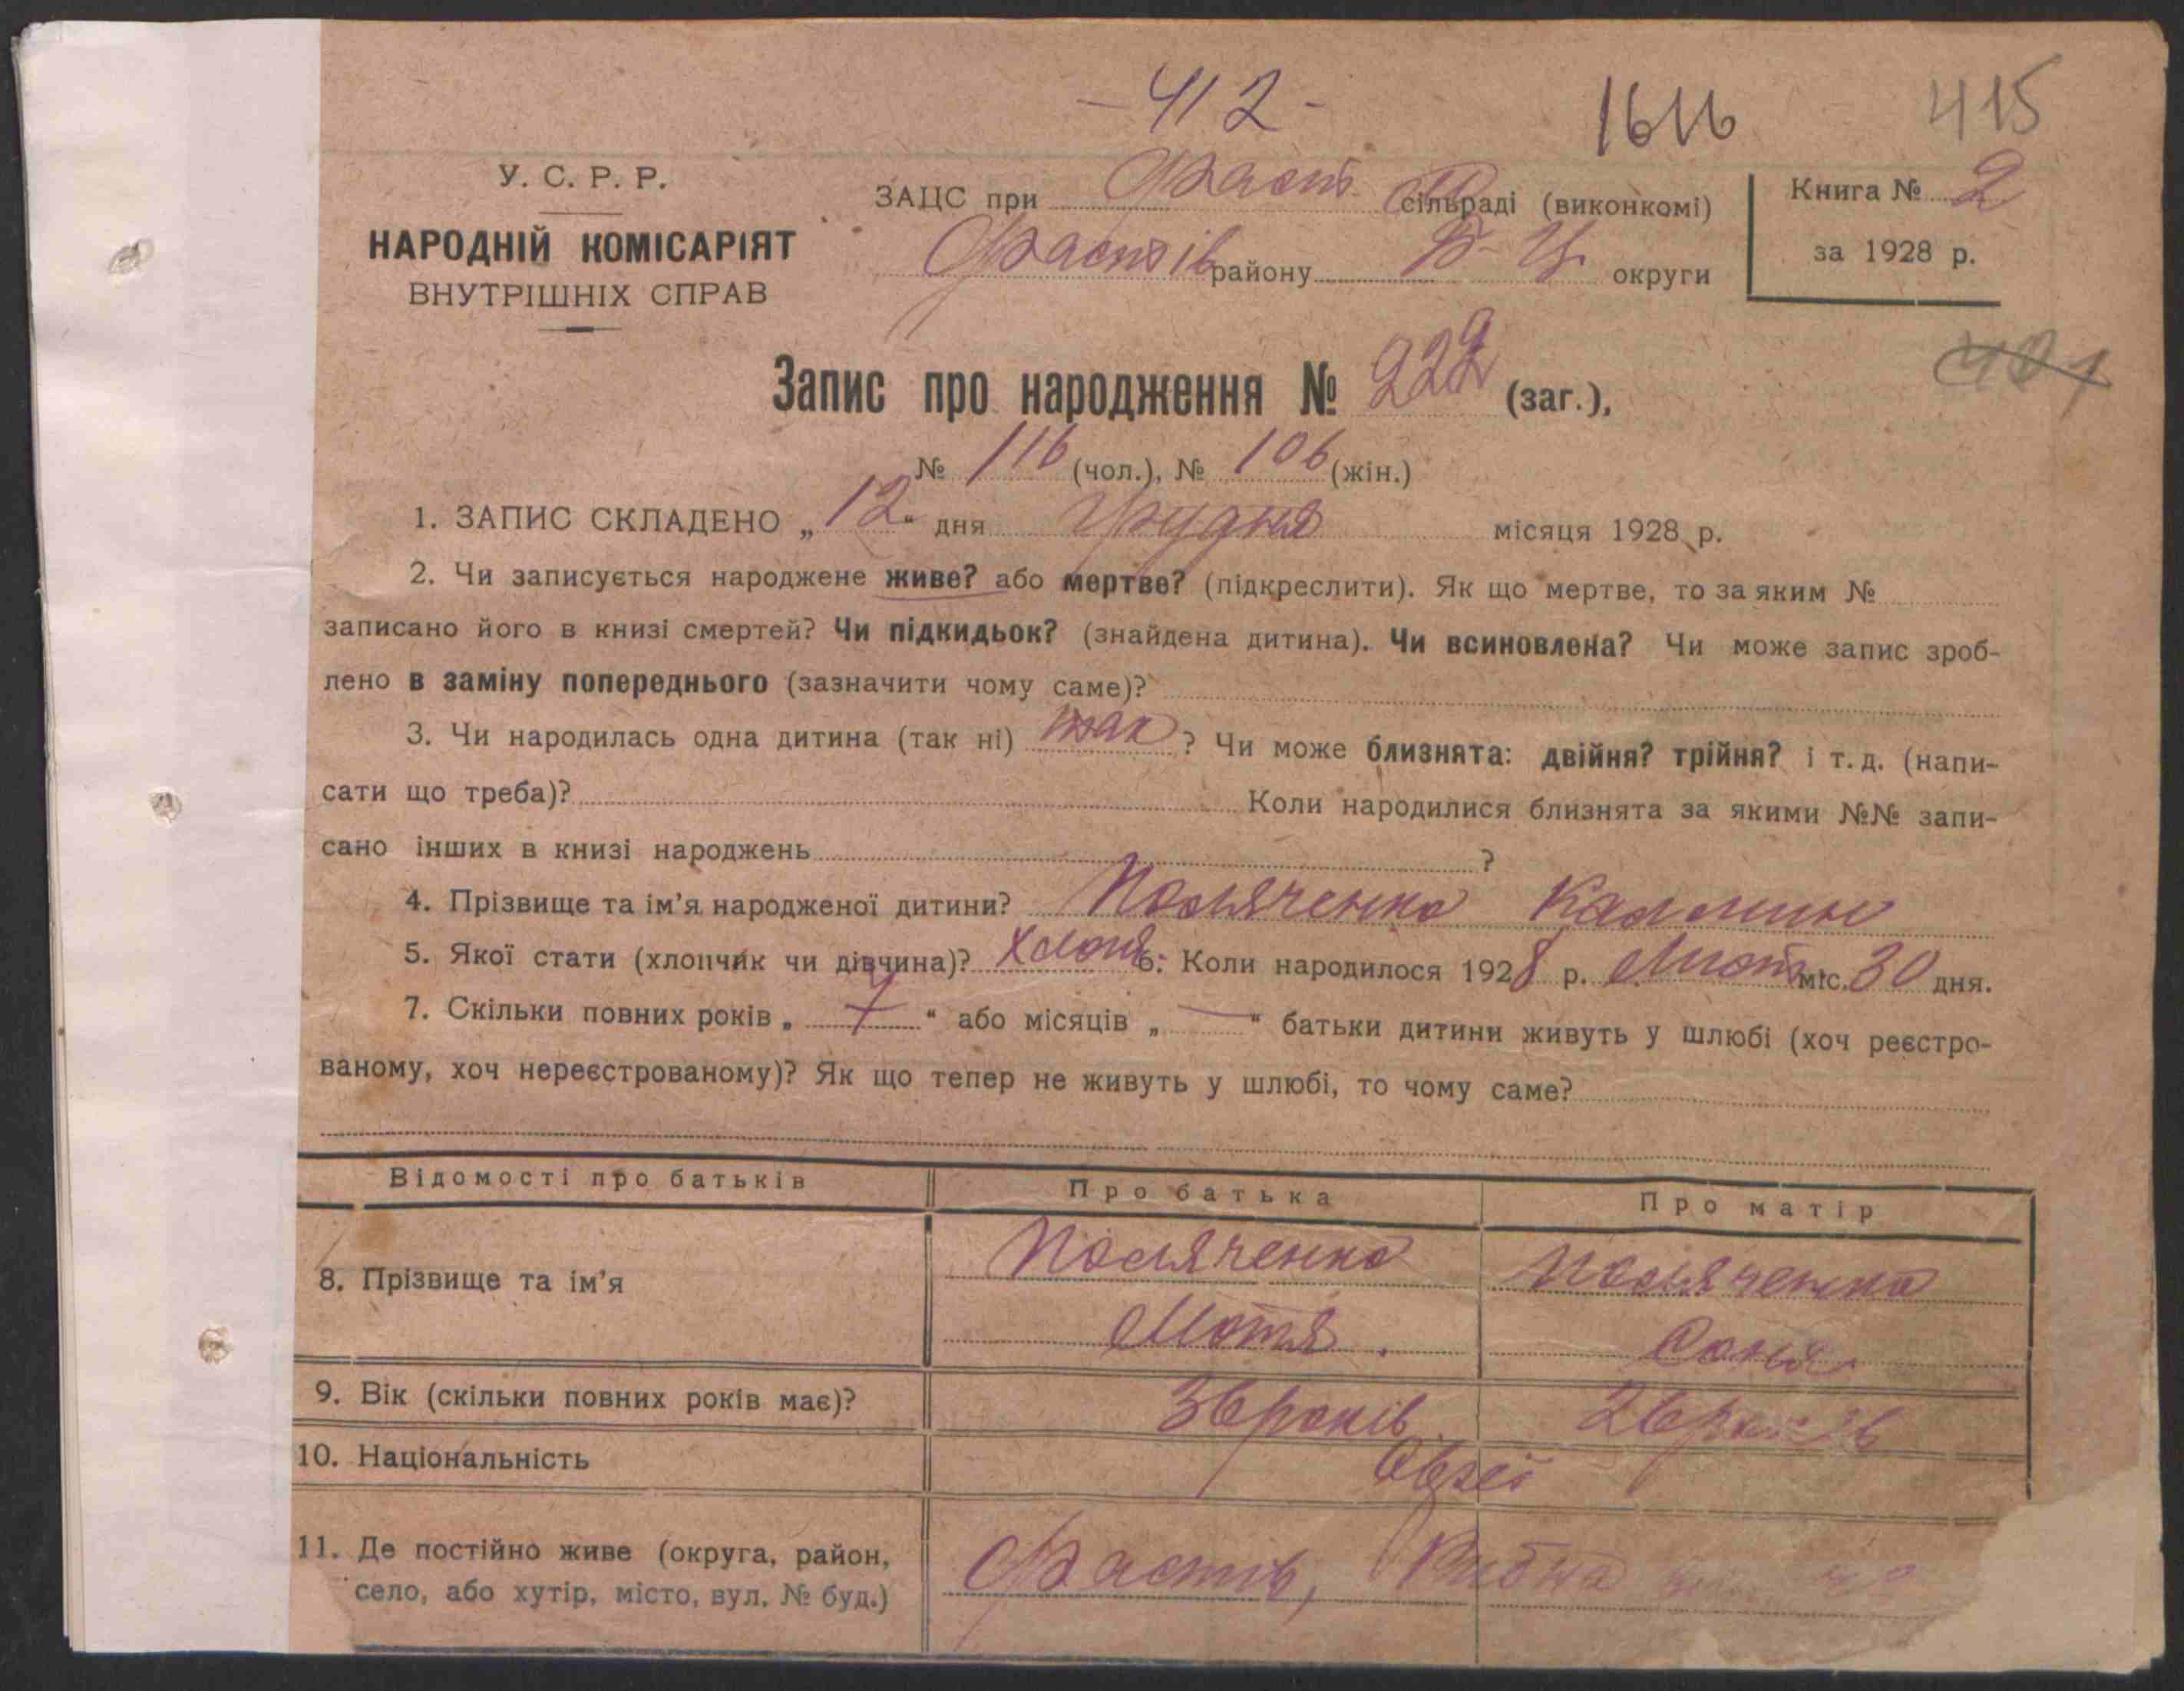 - 412 -
415
У. С. Р. Р.
НАРОДНІЙ КОМІСАРІЯТ
ВНУТРІШНІХ СПРАВ
ЗАЦС при Фаст. сільраді (виконкомі)
Фастів району Б-Ц. округи
Книга № 2
за 1928 р.
Запис про народження № 222 (заг.),
№ 116 (чол.), № 106 (жін.)
1. ЗАПИС СКЛАДЕНО „12“ дня Грудня місяця 1928 р.
2. Чи записується народжене живе? або мертве? (підкреслити). Як що мертве, то за яким №
записано його в книзі смертей? Чи підкидьок? (знайдена дитина). Чи всиновлена? Чи може запис зроб-
лено в заміну попереднього (зазначити чому саме)?
3. Чи народилась одна дитина (так ні) так ? Чи може близнята: двійня? трійня? і т. д. (напи-
сати що треба)? Коли народилися близнята за якими №№ запи-
сано інших в книзі народжень ?
4. Прізвище та ім’я народженої дитини? Поляченко
5. Якої стати (хлопчик чи дівчина)? Хлопч. 6. Коли народилося 1928 р. міс. 30 дня.
7. Скільки повних років „ 7 “ або місяців „ — “ батьки дитини живуть у шлюбі (хоч реєстро-
ваному, хоч нереєстрованому)? Як що тепер не живуть у шлюбі, то чому саме?
Відомості про батьків Про батька Про матір
8. Прізвище та ім’я Поляченко Поляченко
Мотя. Соня
9. Вік (скільки повних років має)? 36 років 26 років
10. Національність Євреї
11. Де постійно живе (округа, район,
село, або хутір, місто, вул. № буд.) Фастів, Рибна